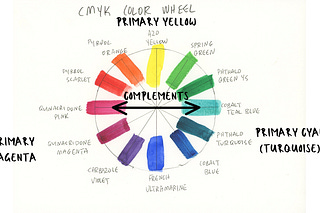 CMYK COLOR WHEEL
PRIMARY YELLOW
AZO
YELLOW
PYRROL
ORANGE
SPRING
GREEN
PYRROL
SCARLET
PHTHALO
GREEN YS
COMPLEMENTS
QUINACRIDONE
PINK
COBALT
TEAL BLUE
PRIMARY CYAN
(TURQUOISE)
RIMARY
AGENTA
QUINACRIDONE
MAGENTA
PHTHALO
TURQUOISE
CARBAZOLE
VIOLET
COBALT
BLUE
FRENCH
ULTRAMARINE